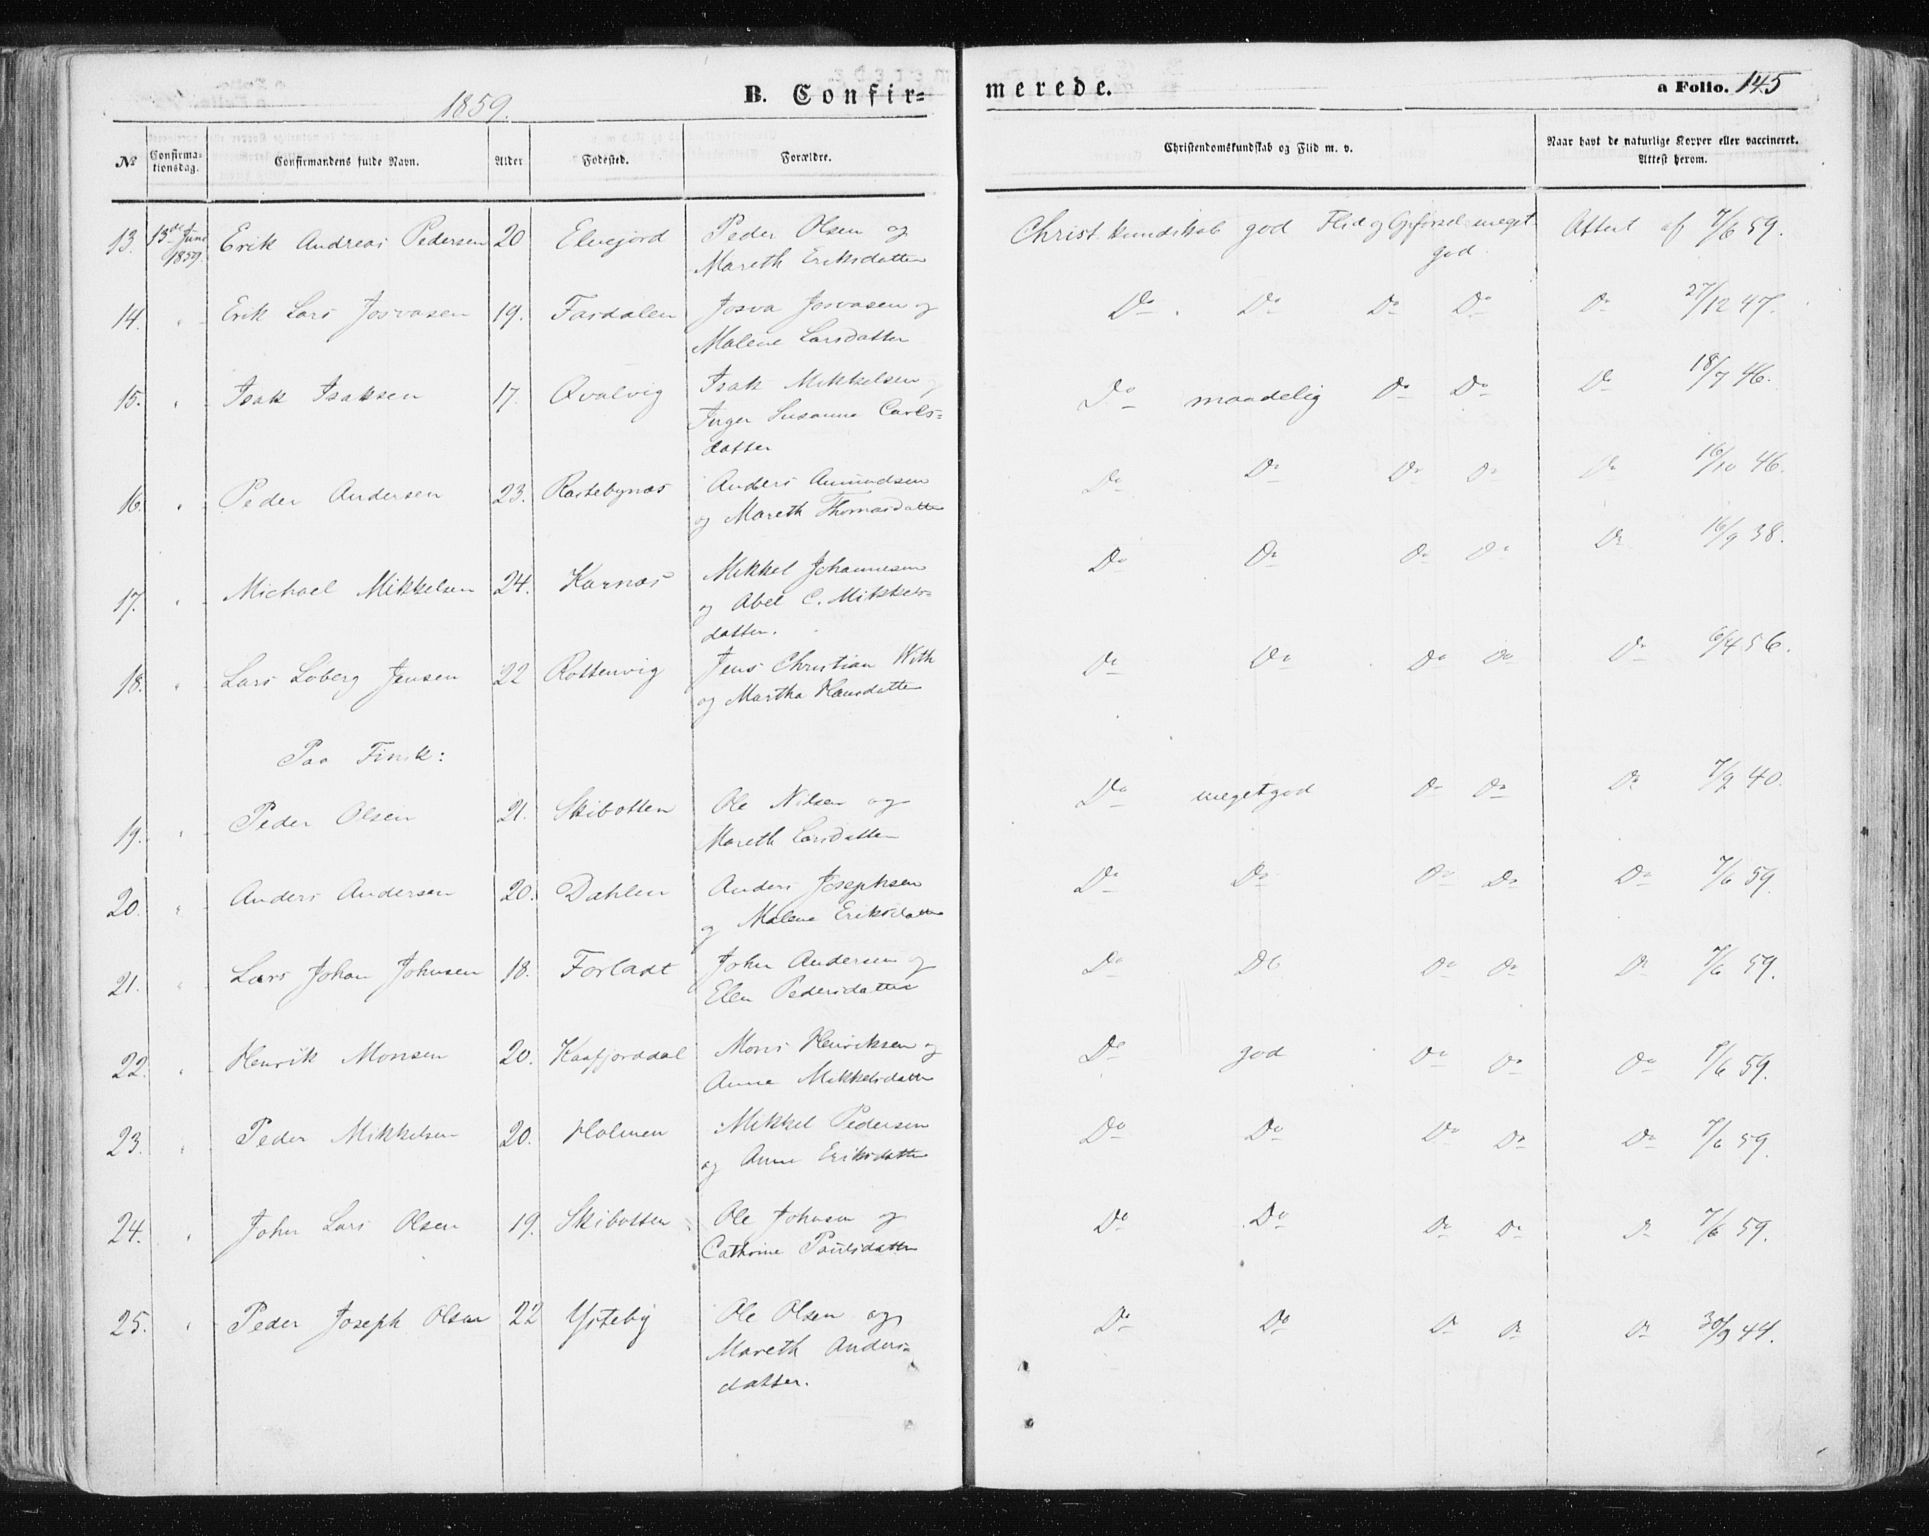 1859.
B. Confir=
merede.
a Folio. 145
No
Confirmationsdag.
Confirmandens fulde Navn.
Alder
Fødested.
Forældre.
Christendomskundskab og Flid m. v.
Naar havt de naturlige Kopper eller vaccineret. Attest herom.
13. 13de Juni 1859. Erik Andreas Pedersen 20 Elvejord Peder Olsen og Christ. kundskab god Flid og Opførsel meget Attest af 7/6 59.
Mareth Eriksdatter god
14. " Erik Lars Josvasen 19. Fardalen Josva Josvasen og Do Do Do Do Do 27/12 47.
Malene Larsdatter
15. " Isak Isaksen 17. Qvalvig Isak Mikkelsen og Do maadelig Do Do Do 18/7 46.
Inger Susanna Carls=
datter
16. " Peder Andersen 23. Rastebynæs Anders Amundsen Do Do Do Do Do 16/10 46.
og Mareth Thomasdatter
17. " Michael Mikkelsen 24. Karnæs Mikkel Johannesen Do Do Do Do Do 16/9 38.
og Abel C. Mikkels=
datter.
18. " Lars Loberg Jensen 22 Rottenvig Jens Christian With Do Do Do Do Do 6/4 56.
og Martha Hansdatter
Paa Finsk:
19. " Peder Olsen 21. Skibotten Ole Nilsen og Do megetgod Do Do Do 7/9 40.
Mareth Larsdatter
20. " Anders Andersen 20. Dahlen Anders Josephsen Do Do Do Do Do 7/6 59.
og Malene Eriksdatter
21. " Lars Johan Johnsen 18. Forladt John Andersen og Do Do Do Do Do 7/6 59.
Elen Pedersdatter
22. " Henrik Monsen 20. Kaafjorddal Mons Henriksen og Do god Do Do Do 8/6 59.
Anne Mikkelsdatter
23. " Peder Mikkelsen 20. Holmen Mikkel Pedersen Do Do Do Do Do 7/6 59.
og Anne Eriksdatter
24. " John Lars Olsen 19. Skibotten Ole Johnsen og Do Do Do Do Do 7/6 59.
Cathrine Paulsdatter
25. " Peder Joseph Olsen 22 Ysteby Ole Olsen og Do Do Do Do Do 30/9 44.
Mareth Anders=
datter.